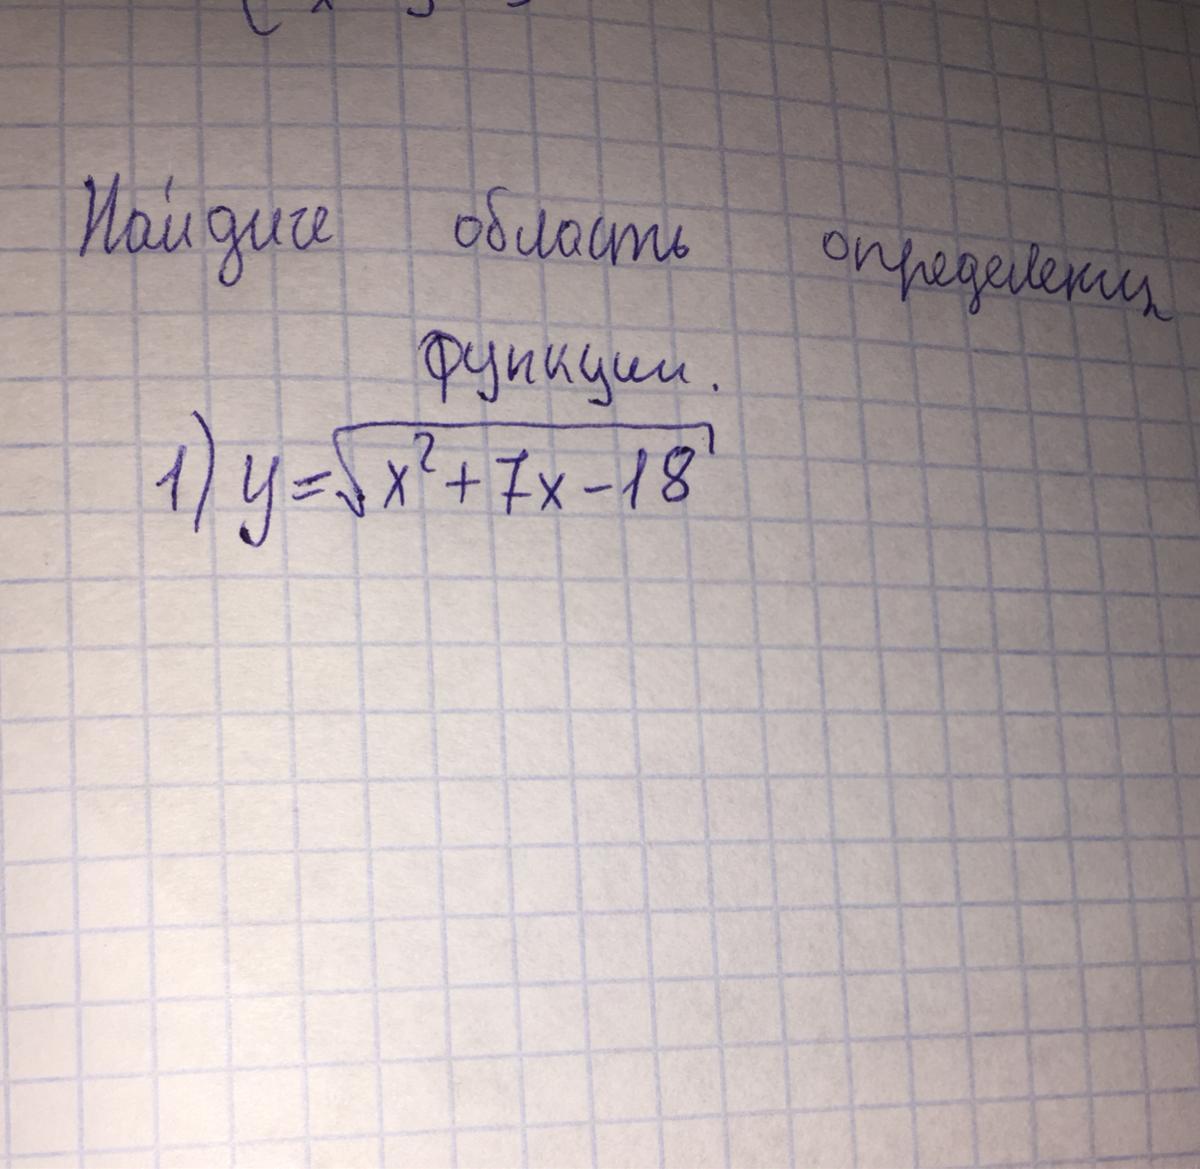 Найдите область определения
функции.
1) y=√x²+7x-18